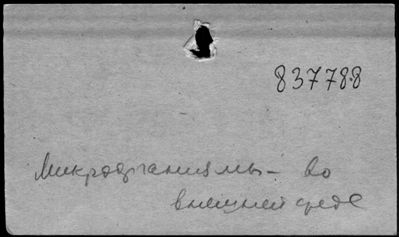 837788
Микроорганизмы - во
внешней среде